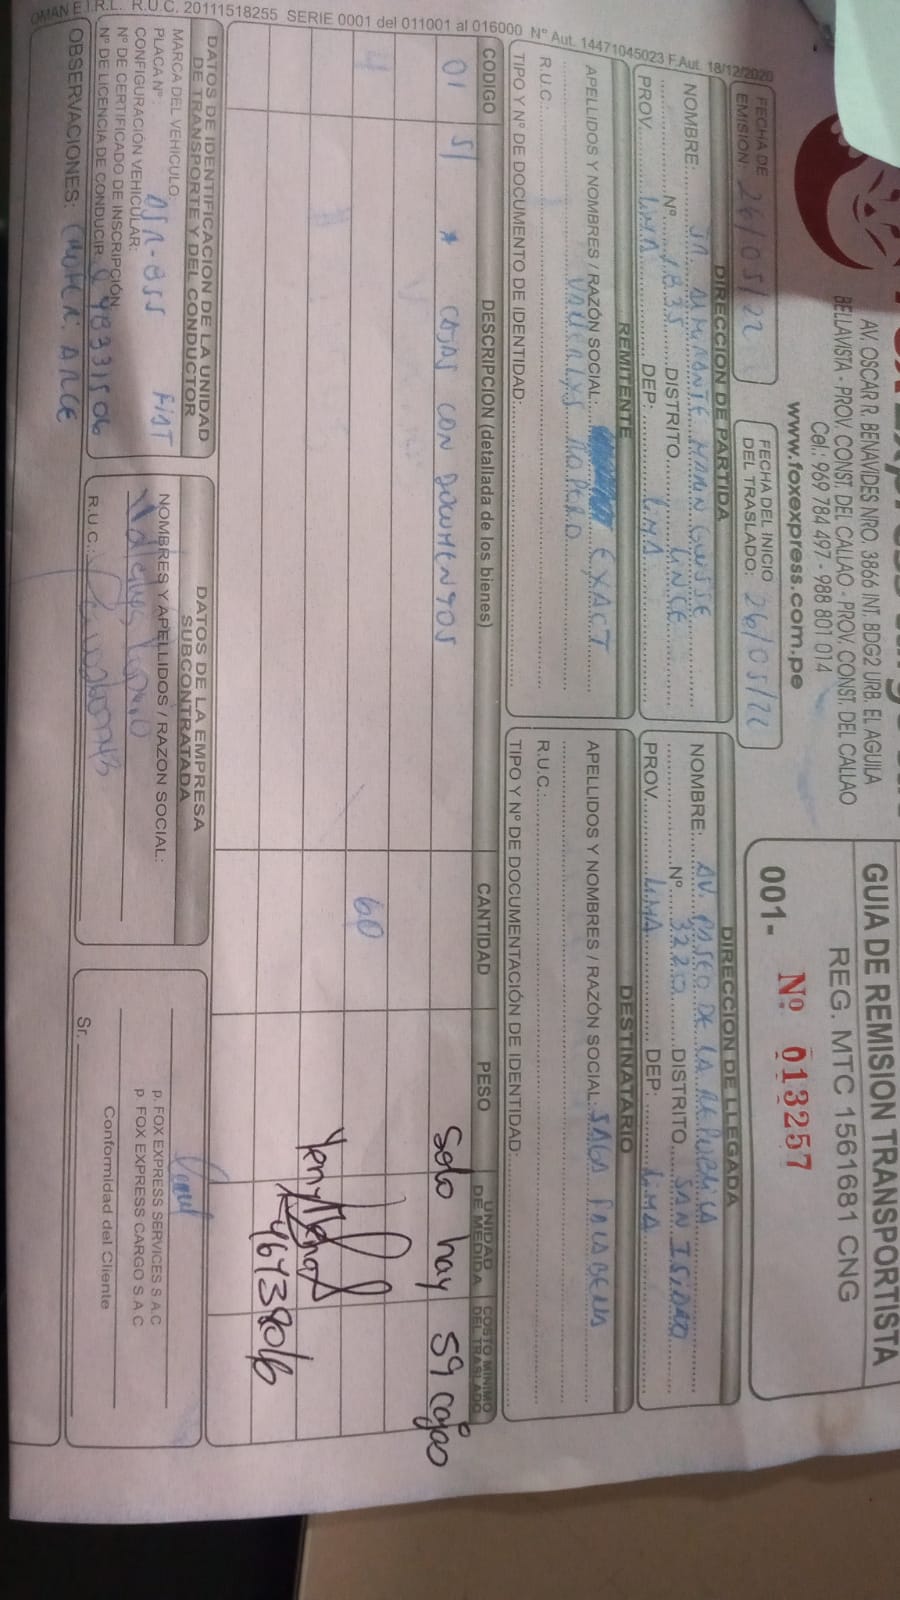 AV. OSCAR R. BENAVIDES NRO. 3866 INT. BDG2 URB. EL AGUILA
BELLAVISTA - PROV. CONST. DEL CALLAO - PROV. CONST. DEL CALLAO
Cel.: 969 784 497 - 988 801 014
www.foxexpress.com.pe
GUIA DE REMISION TRANSPORTISTA
REG. MTC 1561681 CNG
001- Nº 013257
FECHA DE EMISIÓN: 26/05/22
FECHA DEL INICIO DEL TRASLADO: 26/05/22
DIRECCION DE PARTIDA
NOMBRE: JR. ALMIRANTE MARTIN GUISSE
Nº 1835 DISTRITO LINCE
PROV. LIMA DEP: LIMA
DIRECCION DE LLEGADA
NOMBRE: AV. PASEO DE LA REPUBLICA
Nº 3220 DISTRITO SAN ISIDRO
PROV. LIMA DEP: LIMA
REMITENTE
APELLIDOS Y NOMBRES / RAZÓN SOCIAL: EXACT
R.U.C.:
TIPO Y Nº DE DOCUMENTO DE IDENTIDAD:
DESTINATARIO
APELLIDOS Y NOMBRES / RAZÓN SOCIAL: SAGA FALABELLA
R.U.C.:
TIPO Y Nº DE DOCUMENTACIÓN DE IDENTIDAD:
CODIGO DESCRIPCION (detallada de los bienes) CANTIDAD PESO UNIDAD DE MEDIDA COSTO MINIMO DEL TRASLADO
01 S/ * CAJAS CON DOCUMENTOS Solo hay 59 cajas
60
46438016
DATOS DE IDENTIFICACION DE LA UNIDAD DE TRANSPORTE Y DEL CONDUCTOR
MARCA DEL VEHICULO
PLACA Nº: FIAT
CONFIGURACIÓN VEHICULAR:
Nº DE CERTIFICADO DE INSCRIPCIÓN
Nº DE LICENCIA DE CONDUCIR
DATOS DE LA EMPRESA SUBCONTRATADA
NOMBRES Y APELLIDOS / RAZON SOCIAL:
R.U.C.:
p. FOX EXPRESS SERVICES S A C
p. FOX EXPRESS CARGO S A C
Conformidad del Cliente
Sr.
OBSERVACIONES: ARCE
R.U.C. 20111518255 SERIE 0001 del 011001 al 016000 Nº Aut. 14471045023 F.Aut. 18/12/2020